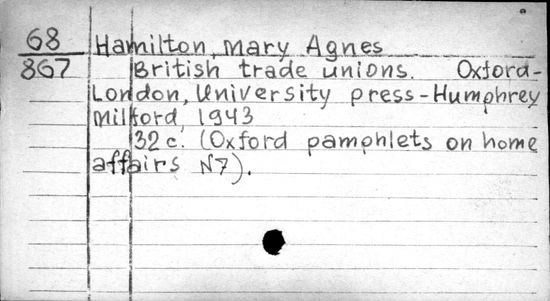 68 Hamilton, Mary Agnes
867 British trade unions. Oxford-
London, University press-Humphrey
Milford, 1943
32 c. (Oxford pamphlets on home
affairs N7).